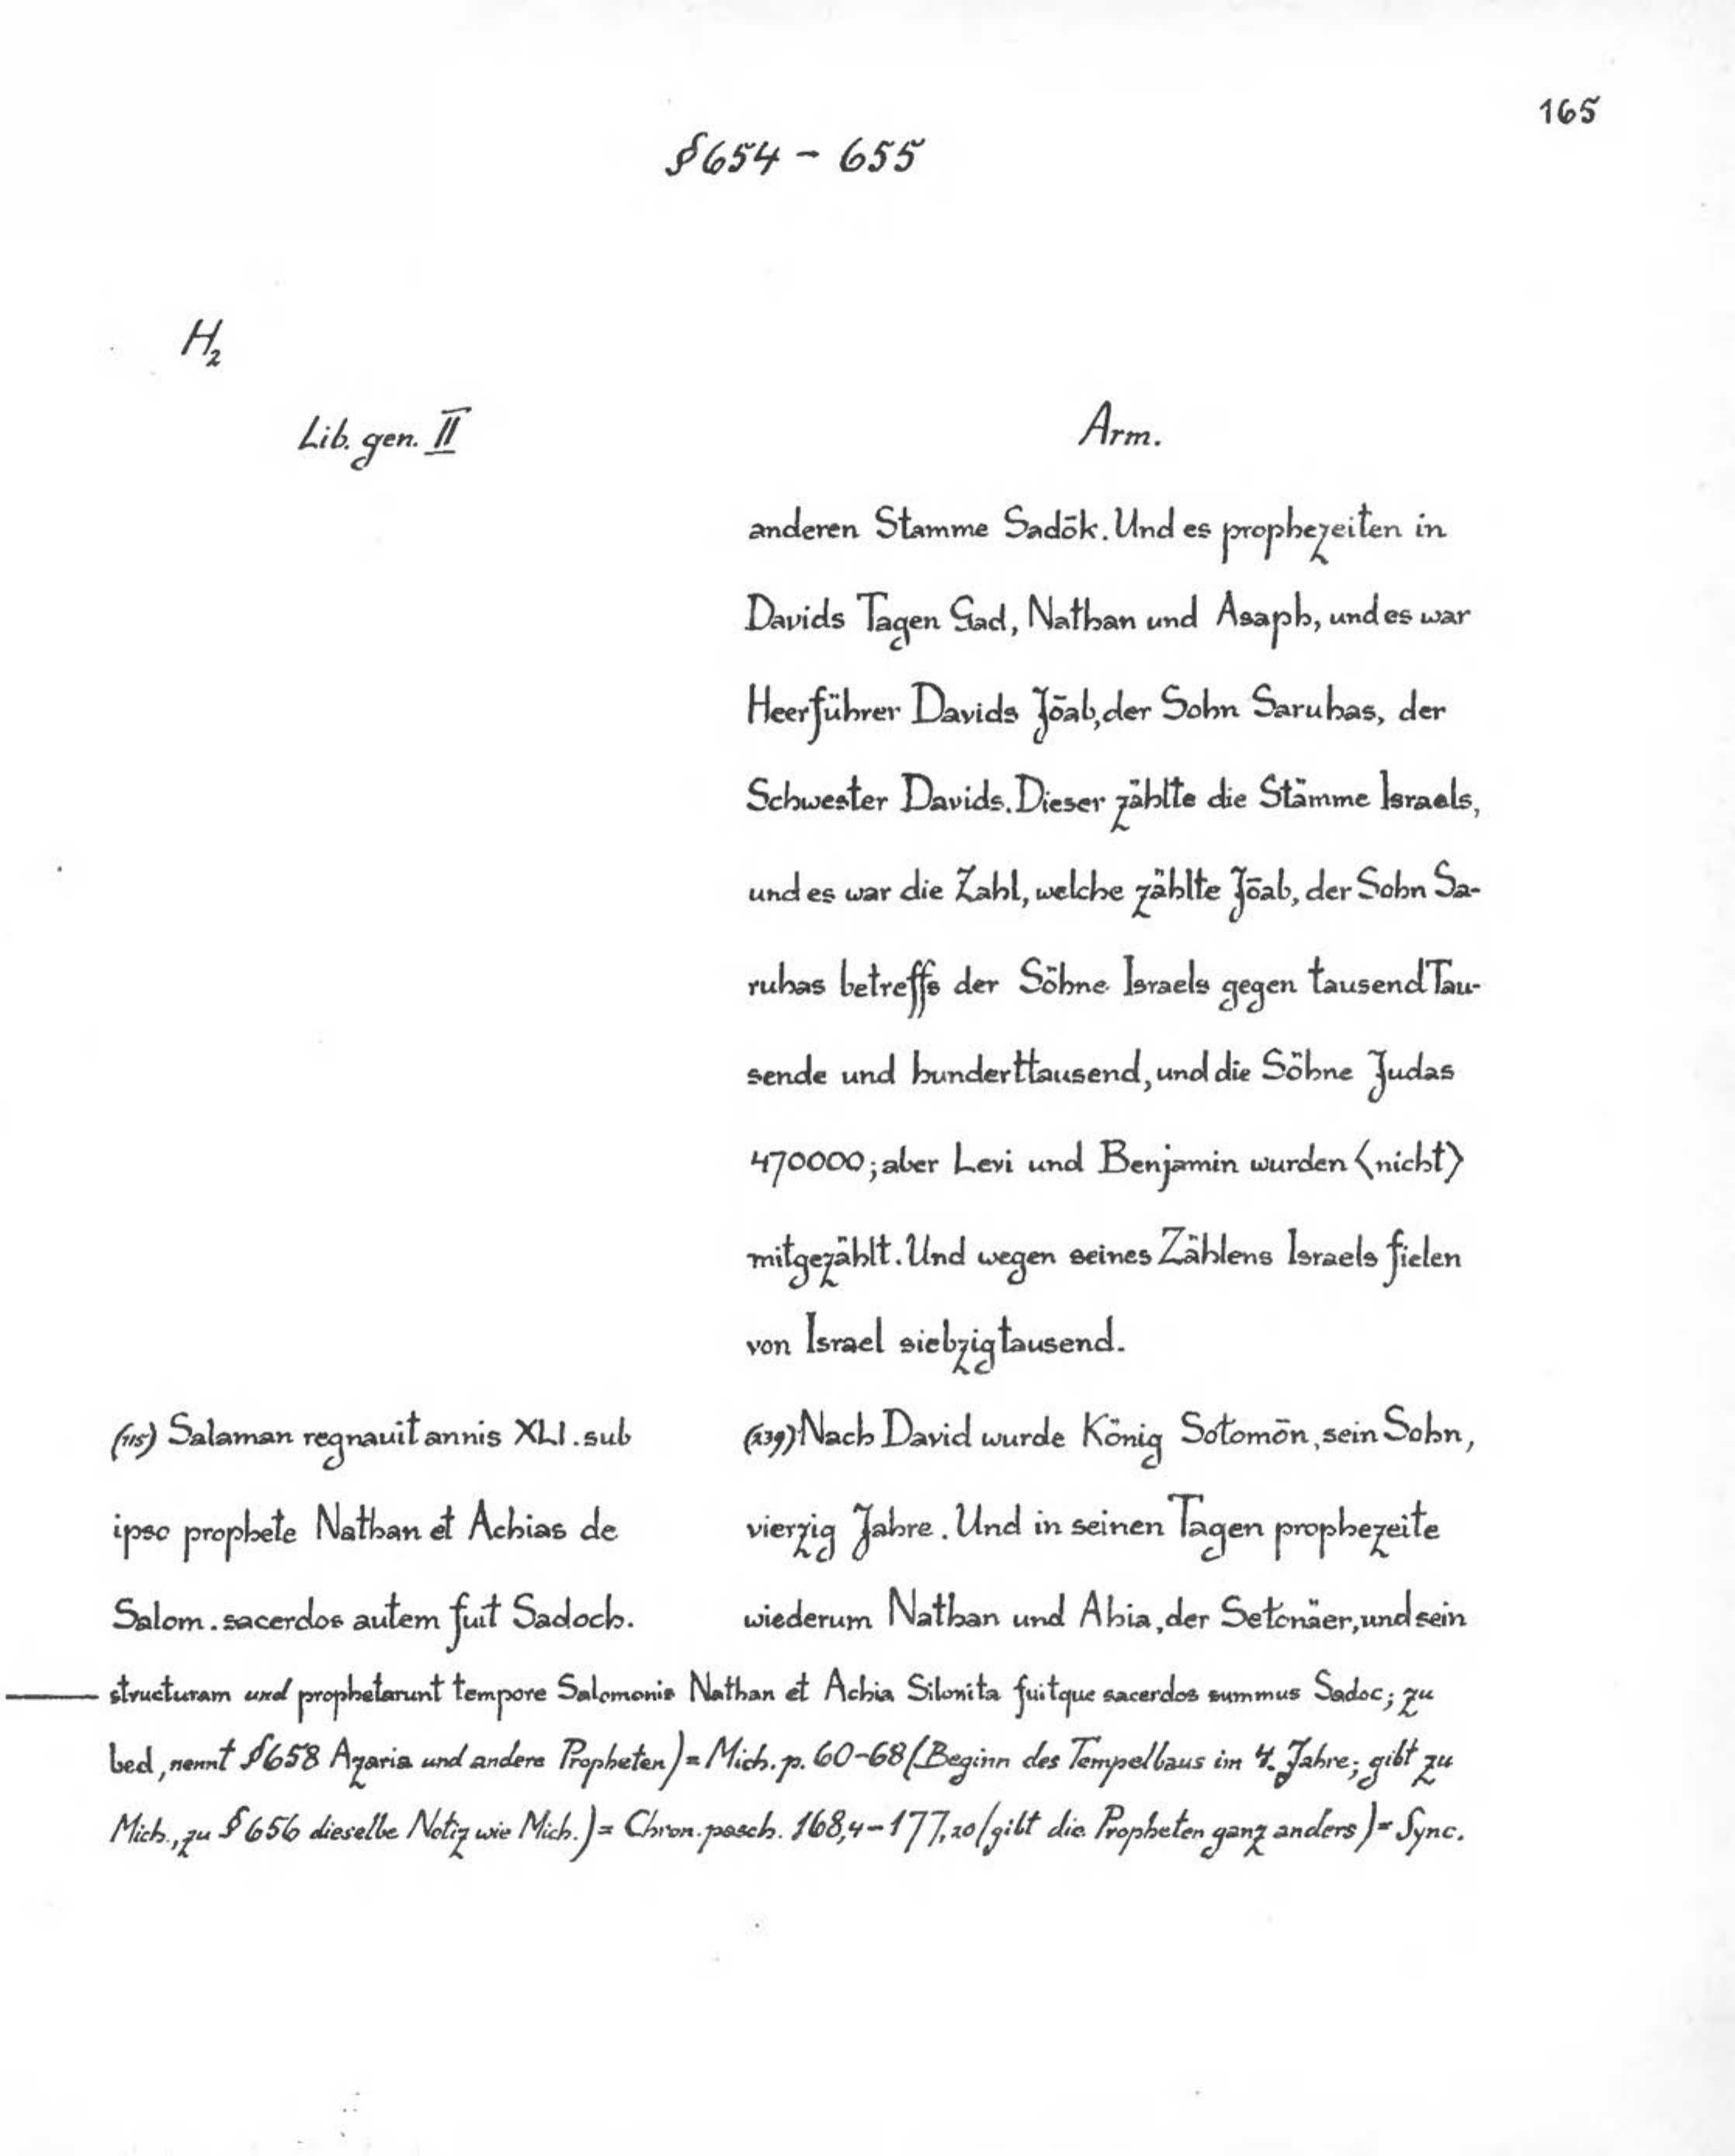 165
§ 654 - 655
H₂
Lib. gen. II
Arm.
anderen Stamme Sadōk. Und es prophezeiten in
Davids Tagen Gad, Nathan und Asaph, und es war
Heerführer Davids Jōab, der Sohn Saruhas, der
Schwester Davids. Dieser zählte die Stämme Israels,
und es war die Zahl, welche zählte Jōab, der Sohn Sa-
ruhas betreffs der Söhne Israels gegen tausend Tau-
sende und hunderttausend, und die Söhne Judas
470000; aber Levi und Benjamin wurden <nicht>
mitgezählt. Und wegen seines Zählens Israels fielen
von Israel siebzigtausend.
(115) Salaman regnauit annis XLI. sub
ipso prophete Nathan et Achias de
Salom. sacerdos autem fuit Sadoch.
(239) Nach David wurde König Sołomōn, sein Sohn,
vierzig Jahre. Und in seinen Tagen prophezeite
wiederum Nathan und Abia, der Setonäer, und sein
structuram und prophetarunt tempore Salomonis Nathan et Achia Silonita fuitque sacerdos summus Sadoc; zu
bed, nennt § 658 Azaria und andere Propheten) = Mich. p. 60-68 (Beginn des Tempelbaus im 4. Jahre; gibt zu
Mich., zu § 656 dieselbe Notiz wie Mich.) = Chron. pasch. 168,4-177,20 (gibt die Propheten ganz anders) = Sync.